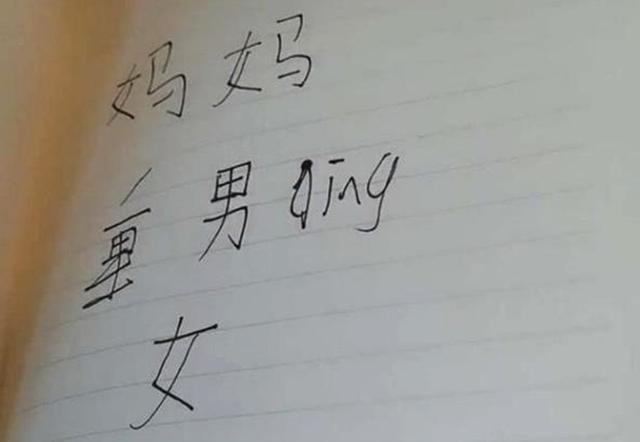 妈妈
重男qing
女